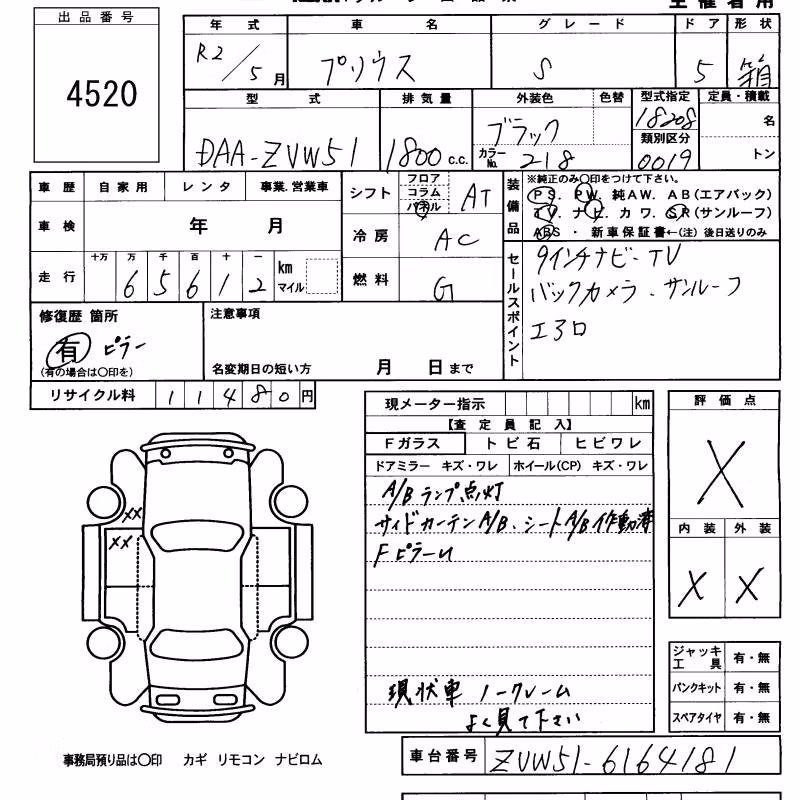 出品番号
4520
年式 車名 グレード ドア 形状
R2/5月 プリウス S 5 箱
型式 排気量 外装色 色替 型式指定 定員・積載
DAA-ZVW51 1800 c.c. ブラック 18208 名
カラーNo. 218 類別区分 0019 トン
車歴 自家用 レンタ 事業.営業車
車検 年 月
走行 十万 万 千 百 十 一 km マイル
6 5 6 1 2
シフト フロア コラム パネル AT
冷房 AC
燃料 G
装備品 ※純正のみ〇印をつけて下さい。
PS. PW. 純AW. AB(エアバック)
TV. ナビ. カワ. SR(サンルーフ)
ABS ・ 新車保証書←(注) 後日送りのみ
セールスポイント
9インチナビ-TV
バックカメラ . サンルーフ
エアロ
修復歴 箇所
有 ピラー
(有の場合は〇印を)
注意事項
名変期日の短い方 月 日まで
リサイクル料 1 1 4 8 0 円
現メーター指示 km
【査定員記入】
Fガラス トビ石 ヒビワレ
ドアミラー キズ・ワレ ホイール(CP) キズ・ワレ
A/Bランプ点灯
サイドカーテンA/B、シートA/B作動済
FピラーU
現状車 ノークレーム
よく見て下さい
評価点
X
内装 外装
X X
XX
XX
ジャッキ工具 有・無
パンクキット 有・無
スペアタイヤ 有・無
事務局預り品は〇印 カギ リモコン ナビロム
車台番号 ZVW51-6164181